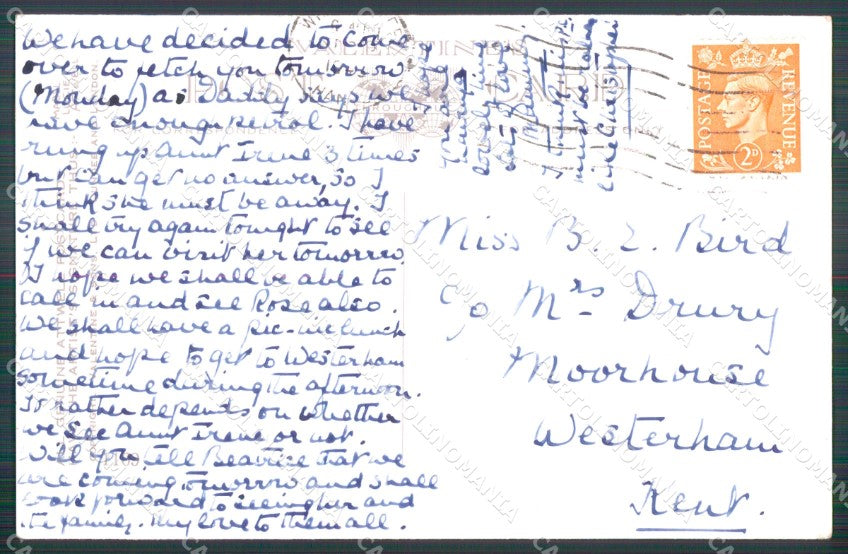 We have decided to come
over to fetch you tomorrow
(Monday) as Daddy says we
have enough petrol. I have
rung up Aunt Irene 3 times
but can get no answer, so I
think she must be away. I
shall try again tonight to see
if we can visit her tomorrow.
I hope we shall be able to
call in and see Rose also.
We shall have a pic-nic lunch
and hope to get to Westerham
sometime during the afternoon.
It rather depends on whether
we see Aunt Irene or not.
Will you tell Beatrice that we
are coming tomorrow and shall
look forward to seeing her and
the family. My love to them all.
hope
you are
having a
lovely time
lots of love
Mummy
I think this p.c.
must be taken
VALENTINE'S
POST CARD
Miss B. E. Bird
c/o Mrs Drury
Moorhouse
Westerham
Kent.
POSTAGE
REVENUE
2D
CARTOLINOMANIA